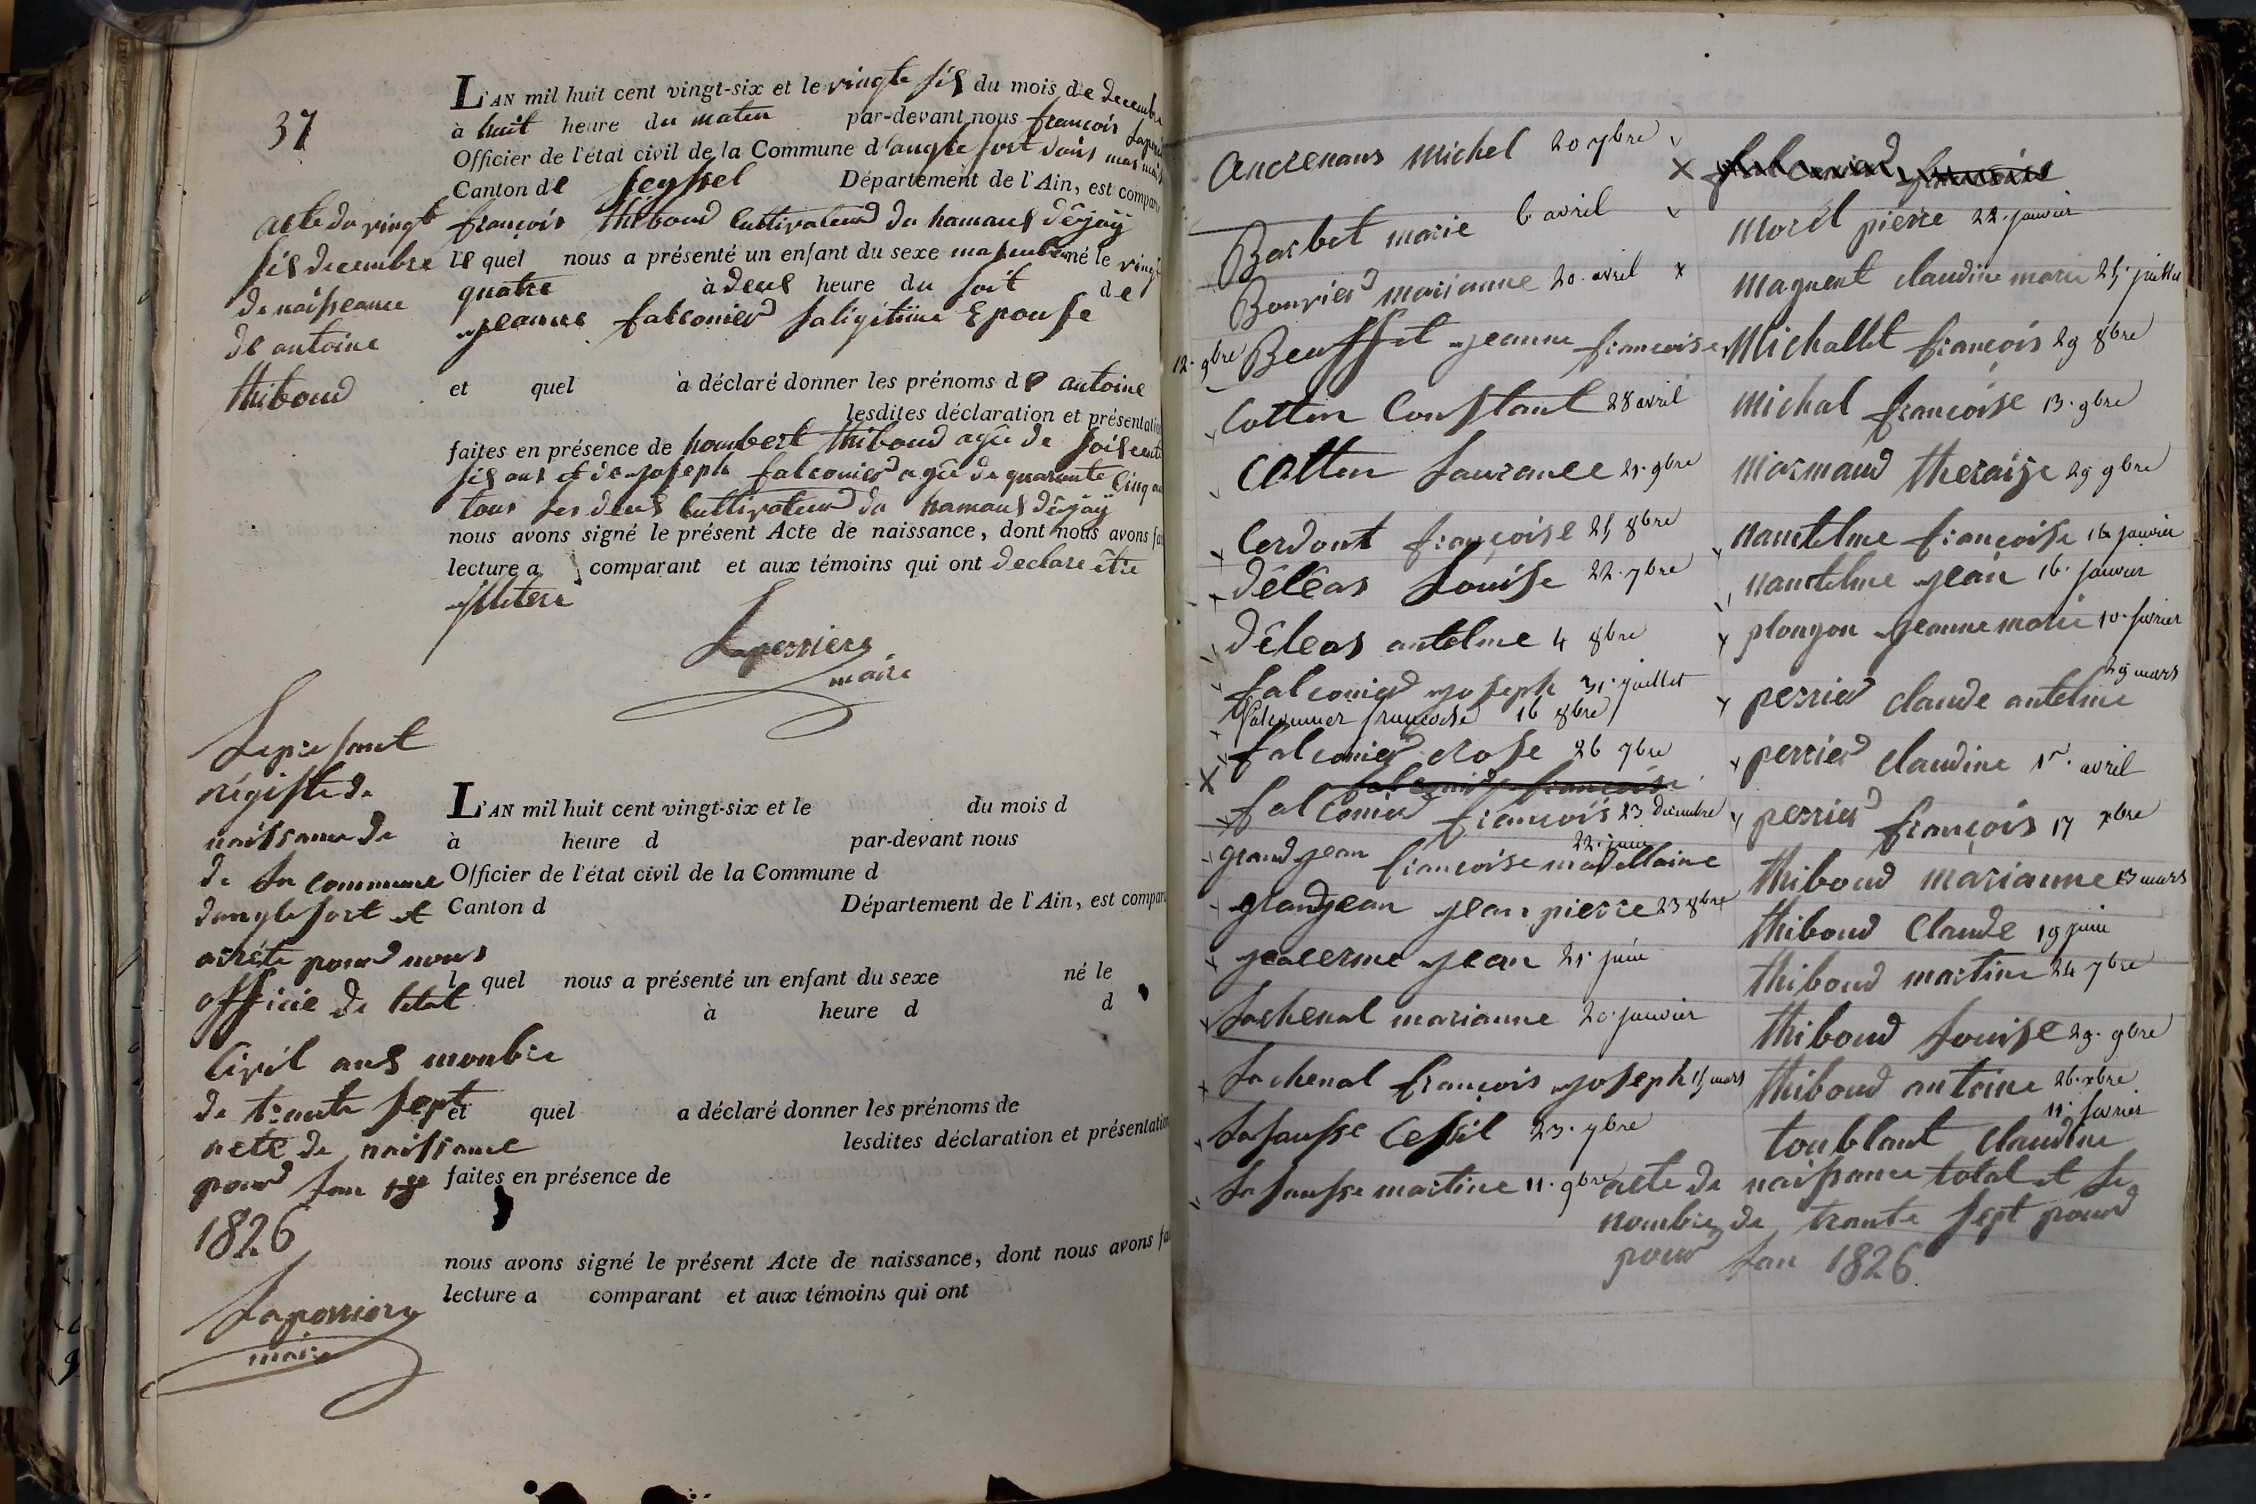 37
acte du vingt
sis decembre
de naissance
de antoine
thiboud
L'AN mil huit cent vingt-six et le vingte sis du mois de decembre
à huit heure du maten par-devant nous francois
Officier de l'état civil de la Commune d'angle fort
Canton de seyssel Département de l'Ain, est compar
françois thiboud Cultivateur du hamaus déjaÿ
le quel nous a présenté un enfant du sexe masculin né le vingt
quatre à deus heure du soit de
jeanne falconier saligitime Epouse
et quel a déclaré donner les prénoms de antoine
lesdites déclaration et présentation
faites en présence de hombert thiboud agée de soisente
sis ans et de joseph falconier agée de quarante Cinq an
tous les deus Cultivateur du hamaus déjaÿ
nous avons signé le présent Acte de naissance, dont nous avons fa
lecture a comparant et aux témoins qui ont declare être
illitere
Laperriere
maire
Le presant
régistre de
naissance de
de la commune
dangle fort et
arréte pour nous
officie de letat
Civil aus monbre
de trante sept
acte de naissance
pour lan
1826
Laperriere
maire
L'AN mil huit cent vingt-six et le du mois d
à heure d par-devant nous
Officier de l'état civil de la Commune d
Canton d Département de l'Ain, est compar
l quel nous a présenté un enfant du sexe né le
à heure d d
et quel a déclaré donner les prénoms de
lesdites déclaration et présentation
faites en présence de
nous avons signé le présent Acte de naissance, dont nous avons fa
lecture a comparant et aux témoins qui ont
Ancrenans Michel 20 7bre
Barbet marie 6 avril
Bouvier marianne 20. avril
12. 9bre Beuffet jeanne francoise
Cotten Constant 28 avril
Cotten Laurance 21. 9bre
Cerdont françoise 25 8bre
Déléas Louise 22. 7bre
Déleas antelme 4 8bre
falconier joseph 31. juillet
falconnier francoise 16 8bre
falconier Rose 26 7bre
falconier francoise
falconier françois 23 decembre
grand jean françoise madellaine 22. juin
grandjean jean pierre 23 8bre
jeacerme jean 21 juin
Lachenal marianne 20. janvier
Lachenal françois joseph 15 mars
Lafausse Cessil 23. 7bre
Lafausse martine 11. 9bre
X falconier francoise
Morel pierre 22. janvier
Maguent claudine marie 25. juillet
Michallet françois 29 8bre
Michal francoise 13. 9bre
Marmaud theraise 29 9bre
nantelme françoise 16 janvier
nantelme jean 16. janvier
plonjon jeanne marie 10. fevrier
29 mars
perrier claude antelme
perrier claudine 1r. avril
perrier françois 17 xbre
thiboud marianne 13 mars
thiboud Claude 19 juin
thiboud martine 24 7bre
thiboud Louise 29. 9bre
thiboud antoine 26. xbre
11. favrier
toublant claudine
acte de naissance total et le
nombre de trante sept pour
pour lan 1826